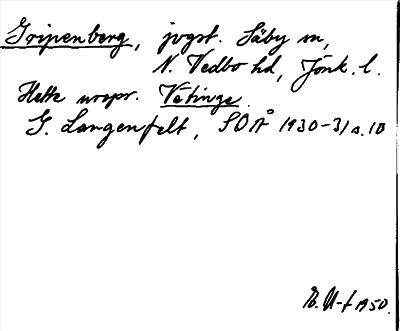 Gripenberg, jvgst. Säby sn,
N. Vedbo hd, Jönk. l.
Hette urspr. Vätinge.
G. Langenfelt, SOÅ 1930-31 s. 10
B. U-f 1950.